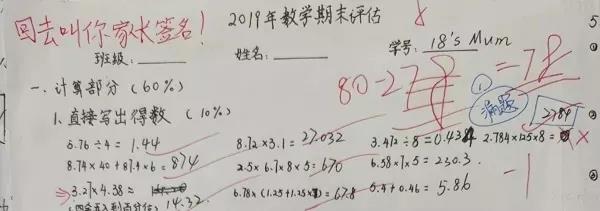 回去叫你家长签名!
2019年数学期末评估
班级: 姓名: 学号: 18's Mum
80-2 = 78
一、计算部分 (60%)
漏题
1、直接写出得数 (10%)
2784
5.76÷4= 1.44 8.72×3.1= 27.032 3.472÷8=0.434 2.784×125×8=
8.74×40+87.4×6= 874 2.5×6.7×8×5= 670 6.58×7×5= 230.3
-1
3.27×4.38≈ 14.32 6.78×(1.25+1.25× )=67.8 5.4+0.46= 5.86
(四舍五入到百分位)
5